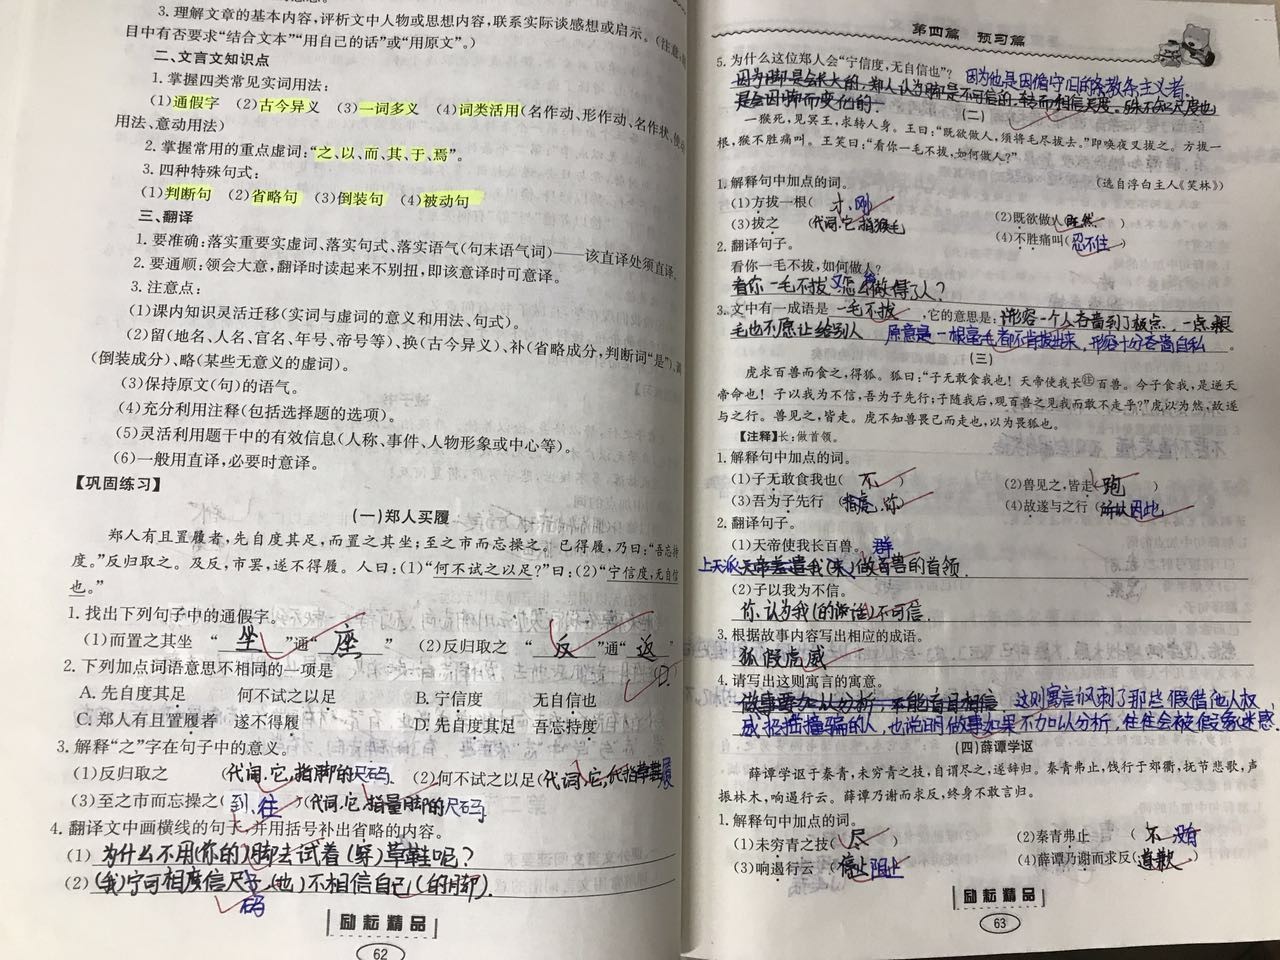 3.理解文章的基本内容,评析文中人物或思想内容,联系实际谈感想或启示。(注意
目中有否要求“结合文本”“用自己的话”或“用原文”。)
二、文言文知识点
1.掌握四类常见实词用法:
(1)通假字 (2)古今异义 (3)一词多义 (4)词类活用(名作动、形作动、名作状、使
用法、意动用法)
2.掌握常用的重点虚词:“之、以、而、其、于、焉”。
3.四种特殊句式:
(1)判断句 (2)省略句 (3)倒装句 (4)被动句
三、翻译
1.要准确:落实重要实虚词、落实句式、落实语气(句末语气词)——该直译处须直译。
2.要通顺:领会大意,翻译时读起来不别扭,即该意译时可意译。
3.注意点:
(1)课内知识灵活迁移(实词与虚词的意义和用法、句式)。
(2)留(地名、人名、官名、年号、帝号等)、换(古今异义)、补(省略成分,判断词“是”)、调
(倒装成分)、略(某些无意义的虚词)。
(3)保持原文(句)的语气。
(4)充分利用注释(包括选择题的选项)。
(5)灵活利用题干中的有效信息(人称、事件、人物形象或中心等)。
(6)一般用直译,必要时意译。
【巩固练习】
(一)郑人买履
郑人有且置履者,先自度其足,而置之其坐;至之市而忘操之。已得履,乃曰:“吾忘持
度。”反归取之。及反,市罢,遂不得履。人曰:(1)“何不试之以足?”曰:(2)“宁信度,无自信
也。”
1.找出下列句子中的通假字。
(1)而置之其坐 “坐”通“座” (2)反归取之 “反”通“返”
2.下列加点词语意思不相同的一项是 D
A.先自度其足 何不试之以足 B.宁信度 无自信也
C.郑人有且置履者 遂不得履 D.先自度其足 吾忘持度
3.解释“之”字在句子中的意义。
(1)反归取之 (代词,它,指脚的尺码) (2)何不试之以足(代词,它,代指草鞋履
(3)至之市而忘操之(到、往)(代词,它,指量脚的尺码)
4.翻译文中画横线的句子,并用括号补出省略的内容。
(1)为什么不用(你的)脚去试着(穿)草鞋呢?
(2)(我)宁可相信尺子,(也)不相信自己(的脚).
码
励耘精品
62
第四篇 预习篇
5.为什么这位郑人会“宁信度,无自信也”? 因为他是因循守旧的教条主义者.
因为脚是会长大的,郑人认为脚是不可信的,转而相信尺度,殊不知尺度也
是会因脚而变化的
(二)
一猴死,见冥王,求转人身。王曰:“既欲做人,须将毛尽拔去。”即唤夜叉拔之。方拔一
根,猴不胜痛叫。王笑曰:“看你一毛不拔,如何做人?”
(选自浮白主人《笑林》)
1.解释句中加点的词。
(1)方拔一根(才、刚) (2)既欲做人(既然)
(3)拔之 (代词,它,指猴毛 (4)不胜痛叫(忍不住)
2.翻译句子。
看你一毛不拔,如何做人?
看你一毛不拔,又怎么做得了人?
3.文中有一成语是 一毛不拔 ,它的意思是:形容一个人吝啬到了极点,一点
毛也不愿让给别人 原意是一根毫毛都不肯拔出来,形容十分吝啬自私。
(三)
虎求百兽而食之,得狐。狐曰:“子无敢食我也!天帝使我长[注]百兽。今子食我,是逆天
帝命也!子以我为不信,吾为子先行;子随我后,观百兽之见我而敢不走乎?”虎以为然,故遂
与之行。兽见之,皆走。虎不知兽畏己而走也,以为畏狐也。
【注释】长:做首领。
1.解释句中加点的词。
(1)子无敢食我也( 不 ) (2)兽见之,皆走( 跑 )
(3)吾为子先行(指虎,你) (4)故遂与之行(所以因此)
2.翻译句子。
(1)天帝使我长百兽。 群
上天派天帝差遣我(来)做百兽的首领.
(2)子以我为不信。
你认为我(的话)不可信.
3.根据故事内容写出相应的成语。
狐假虎威
4.请写出这则寓言的寓意。
做事要加以分析,不能盲目相信 这则寓言讽刺了那些假借他人权
威招摇撞骗的人,也说明做事如果不加以分析,往往会被假象迷惑.
(四)薛谭学讴
薛谭学讴于秦青,未穷青之技,自谓尽之,遂辞归。秦青弗止,饯行于郊衢,抚节悲歌,声
振林木,响遏行云。薛谭乃谢而求反,终身不敢言归。
1.解释句中加点的词。
(1)未穷青之技( 尽 ) (2)秦青弗止 ( 不 没有
(3)响遏行云 (停止阻止 (4)薛谭乃谢而求反(道歉)
励耘精品
63